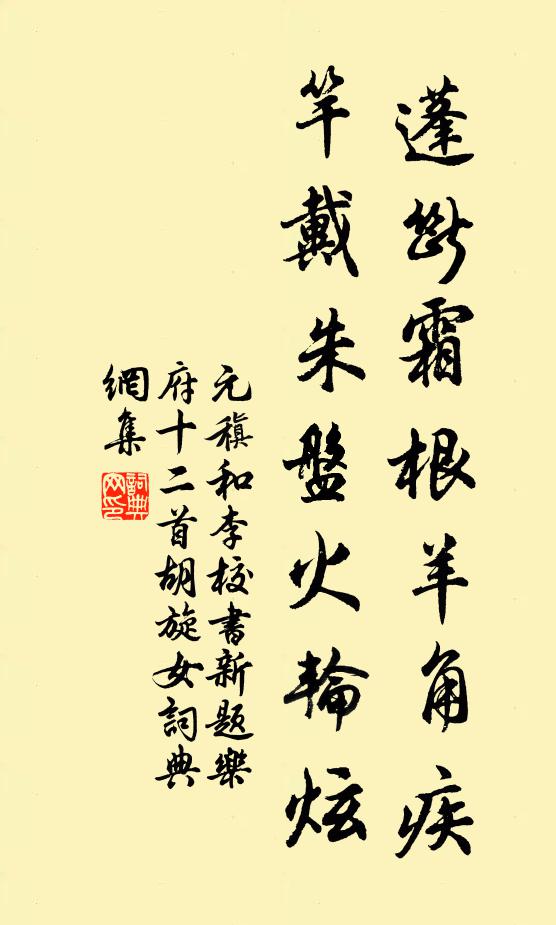 蓬斷霜根羊角疾
竿戴朱盤火輪炫
元稹和李校書新題樂
府十二首胡旋女詞典
網集
詞典
网印